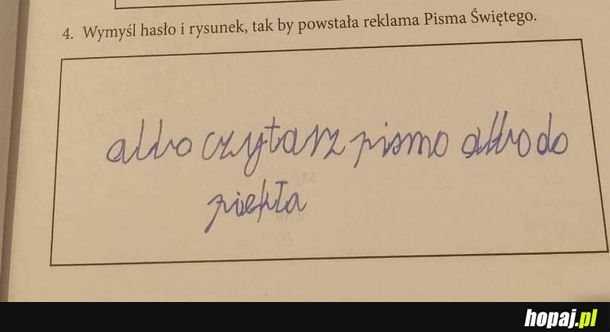 4. Wymyśl hasło i rysunek, tak by powstała reklama Pisma Świętego.
albo czytarz pismo albo do
piekła
hopaj.pl